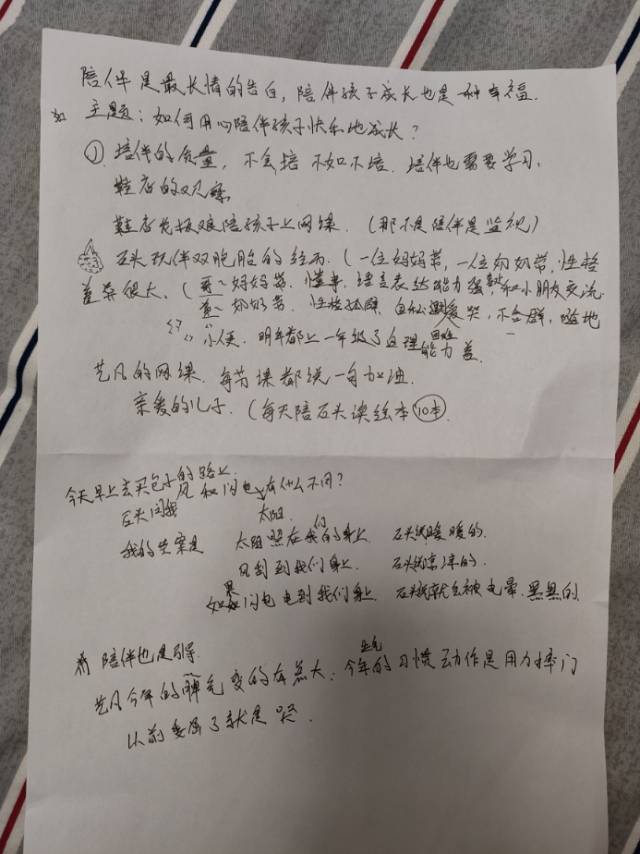 陪伴是最长情的告白，陪伴孩子成长也是一种幸福.
主题：如何用心陪伴孩子快乐地成长？
① 培伴的质量，不会培 不如不培. 培伴也需要学习.
鞋店的观察
鞋店老板娘陪孩子上网课.（那不是陪伴是监视）
石头玩伴双胞胎的经历.（一位妈妈带，一位奶奶带，性格
差异很大.（哥~妈妈带. 懂事. 语言表达能力强，和小朋友交流
奶奶带. 性格孤僻. 自私 爱哭，不合群，随地
小便. 明年都上一年级了自理能力差.
艺凡的网课. 每节课都说一句加油.
亲爱的儿子.（每天陪石头读绘本 10本
今天早上去买包子的路上.
石头问我 太阳. 风和闪电有什么不同？
我的答案是 太阳照在我们的身上. 石头就暖暖的.
风刮到我们身上. 石头就凉凉的.
如果闪电电到我们身上 石头就会被电晕. 黑黑的
陪伴也是引导.
艺凡今年的脾气变的有点大；今年的生气习惯动作是用力摔门
以前委屈了就是哭.